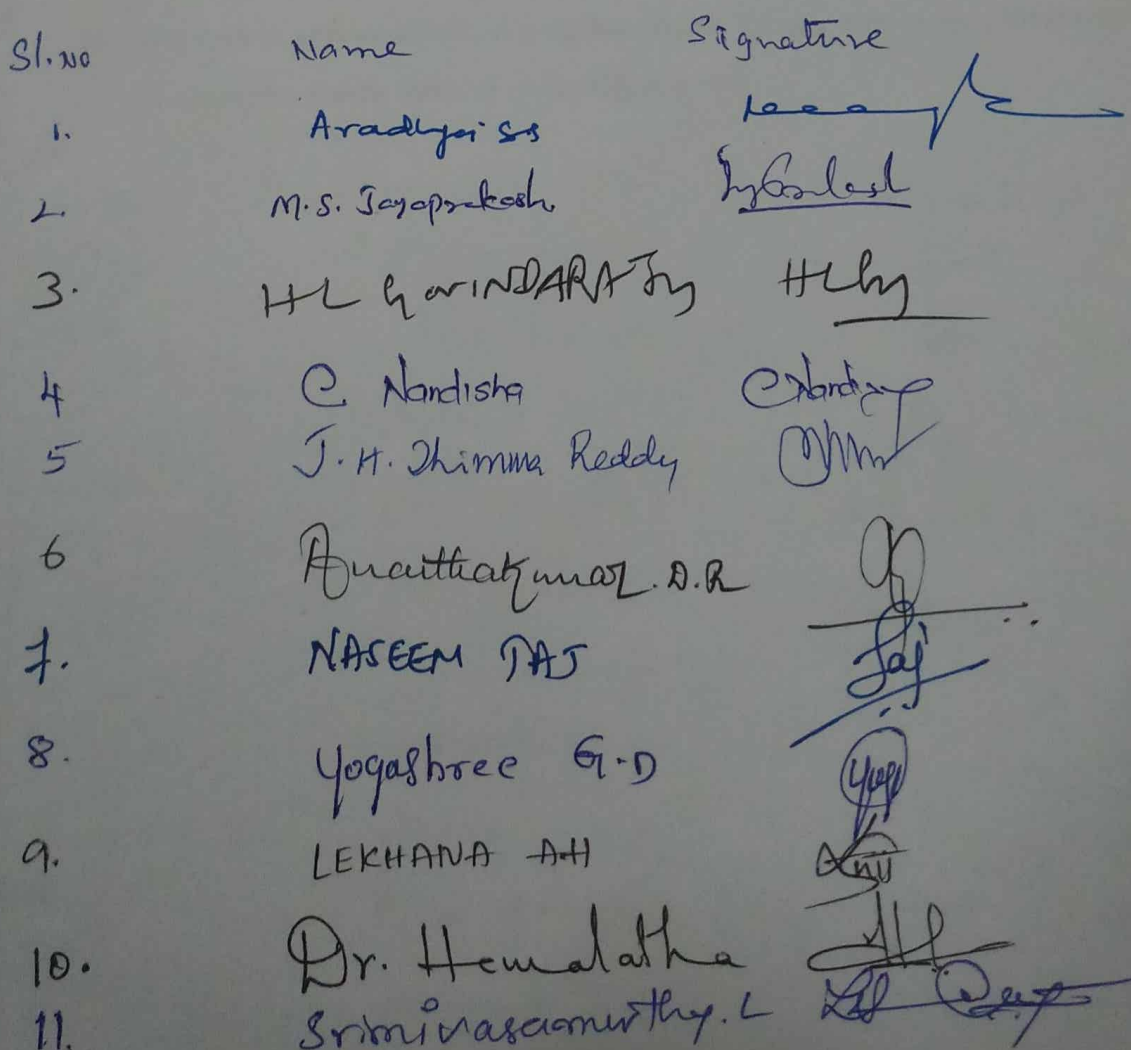 Sl. No Name Signature
1. Aradhya SS
2. M.S. Jayaprakash
3. HL GovINDARAJu HL
4 C Nandisha C Nandi
5 J. H. Thimma Reddy
6 Ananthakumar. D.R
7. NASEEM TAJ Taj
8. Yogashree G.D Yogi
9. LEKHANA A.H
10. Dr. Hemalatha
11. Srinivasamurthy. L